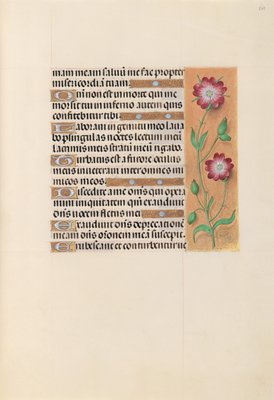 mam meam salvū me fac propter
misericordiā tuam
Qm̄ non est in morte qui me
mor sit tui in inferno autem quis
confitebitur tibi
Laboravi in gemitu meo lava
bo p singulas noctes lectum meū
lacrimis meis stratū meū rigabo
Turbatus est a furore oculus
meus inveteravi inter omnes ini
micos meos
Discedite a me om̄s qui opera
mini iniquitatem qm̄ exaudivit
dn̄s vocem fletus mei
Exaudivit dn̄s deprecationē
meam dn̄s orōnem meā suscepit
Erubescant et conturbentur ve